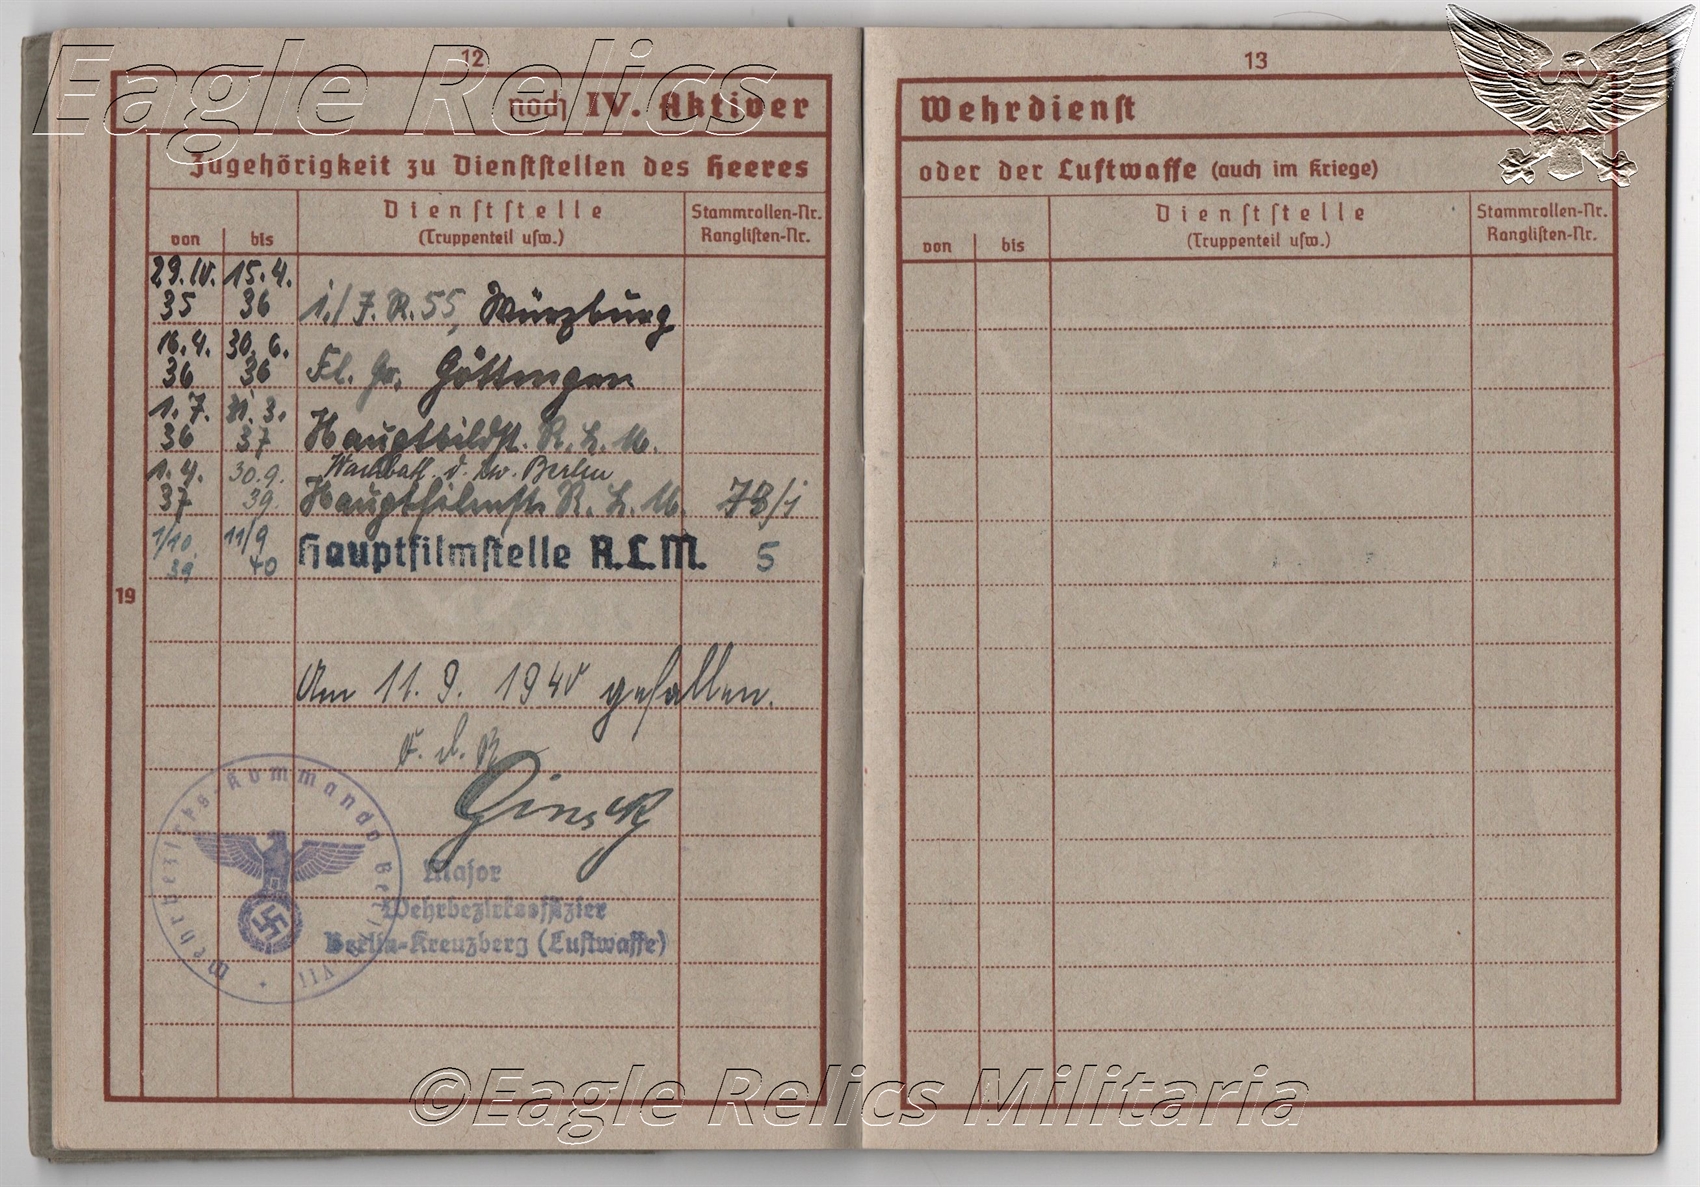 Eagle Relics
12
noch IV. Aktiver
Zugehörigkeit zu Dienststellen des Heeres
von
bis
Dienststelle
(Truppenteil usw.)
Stammrollen-Nr.
Ranglisten-Nr.
29.IV. 35 15.4. 36 1./J.R. 55, Würzburg
16.4. 36 30.6. 36 Fl. Gr. Göttingen
1.7. 36 31.3. 37 Hauptbildst. R.L.M.
Berlin
1.4. 37 30.9. 39. Hauptfilmst. R.L.M. 78/1
1/10. 39 11/9 40 Hauptfilmstelle R.L.M. 5
19
Am 11.9.1940 gefallen.
F. d. R.
Major
Wehrbezirksoffizier
Berlin-Kreuzberg (Luftwaffe)
Wehrbezirks-Kommando Berlin VII
13
Wehrdienst
oder der Luftwaffe (auch im Kriege)
von
bis
Dienststelle
(Truppenteil usw.)
Stammrollen-Nr.
Ranglisten-Nr.
©Eagle Relics Militaria